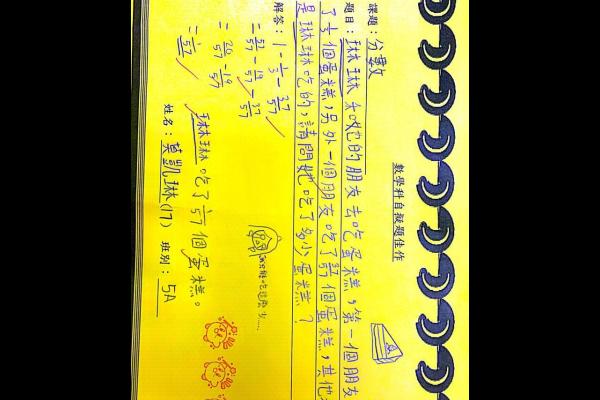 數學科自擬題佳作
課題：分數
題目：琳琳和她的朋友去吃蛋糕，第一個朋友
了1/3個蛋糕，另外一個朋友吃了37/57個蛋糕，其他
是琳琳吃的，請問她吃了多小蛋糕？
解答：1 - 1/3 - 37/57
= 57/57 - 19/57 - 37/57
= 20/57 - 19/57
= 1/57
琳琳吃了1/57個蛋糕。
姓名：莫凱琳(17) 班別：5A